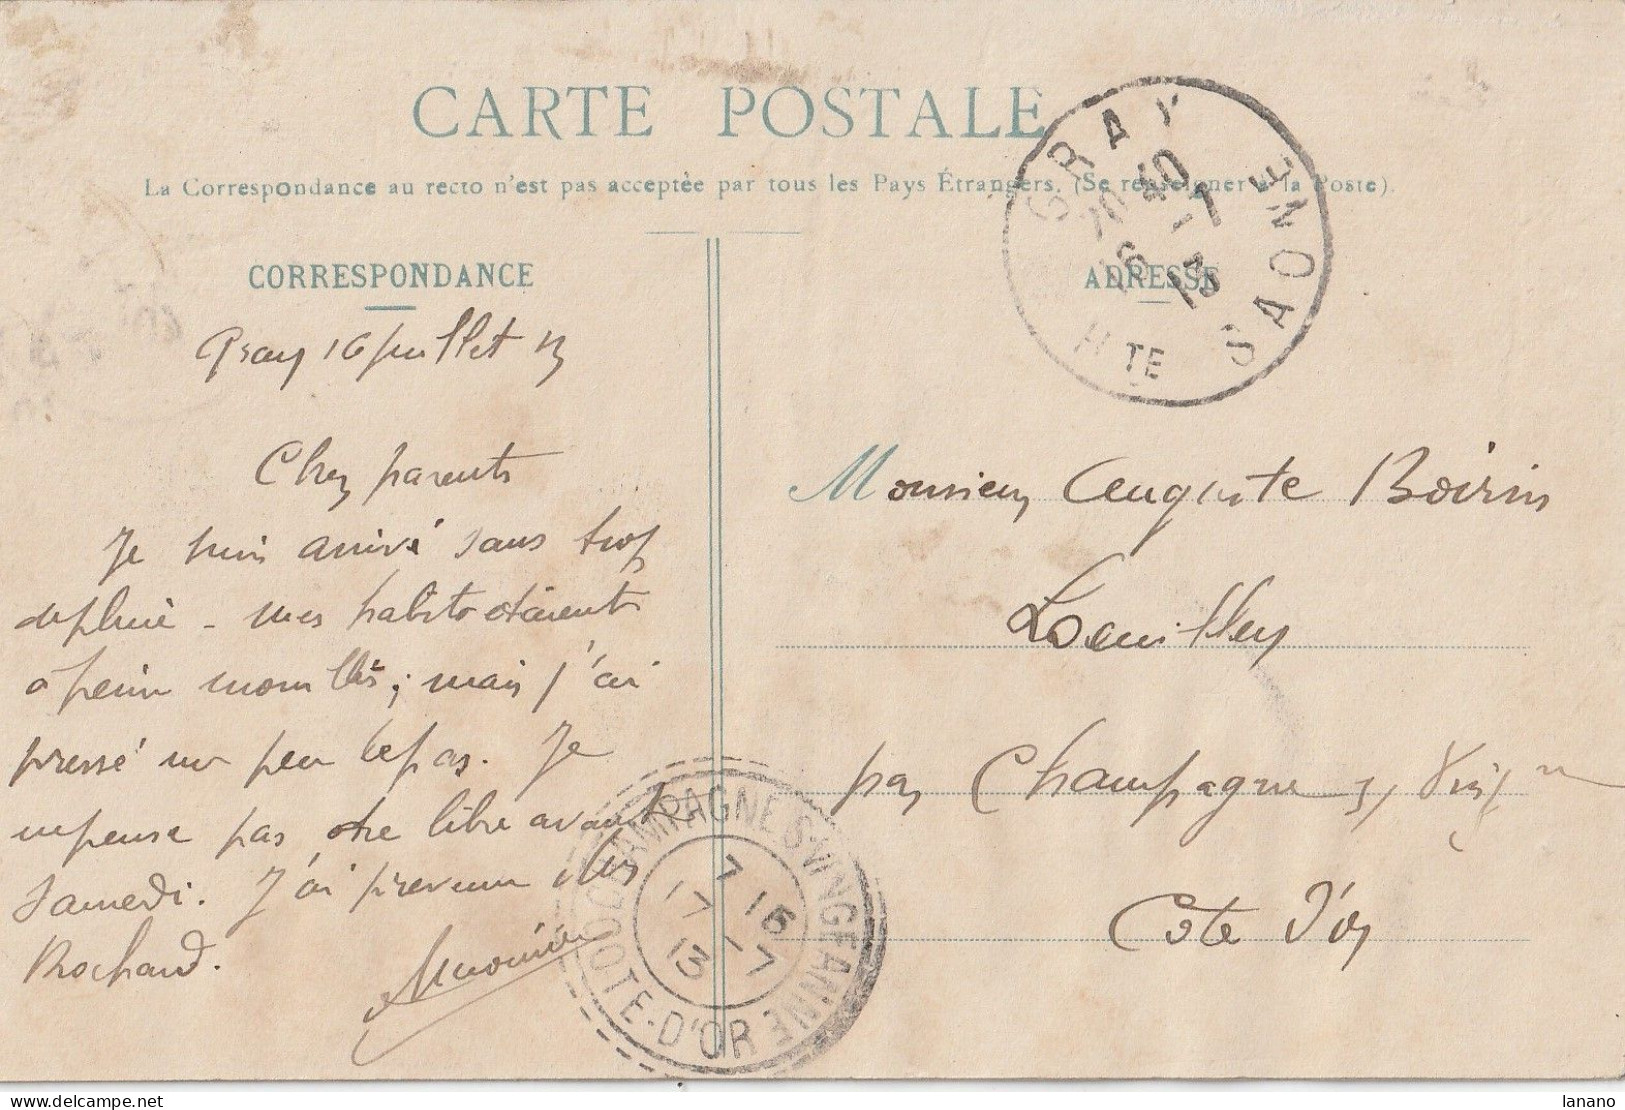 CARTE POSTALE
La Correspondance au recto n'est pas acceptée par tous les Pays Étrangers. (Se renseigner à la Poste).
CORRESPONDANCE
ADRESSE
GRAY
20 40
16 - 7
13
HTE SAONE
Gray 16 juillet 13
Cher parents
Je suis arrivé sans trop
de pluie - mes habits étaient
à peine mouillés; mais j'ai
pressé un peu le pas. Je
ne pense pas être libre avant
Samedi. J'ai prevenu les
Rochard.
Monsieur Auguste Boirin
Loeuilley
par Champagne s/ Ving^ne
Côte d'Or
CHAMPAGNE S. VINGEANNE
7 15
17 - 7
13
COTE-D'OR
delcampe.net
lanano